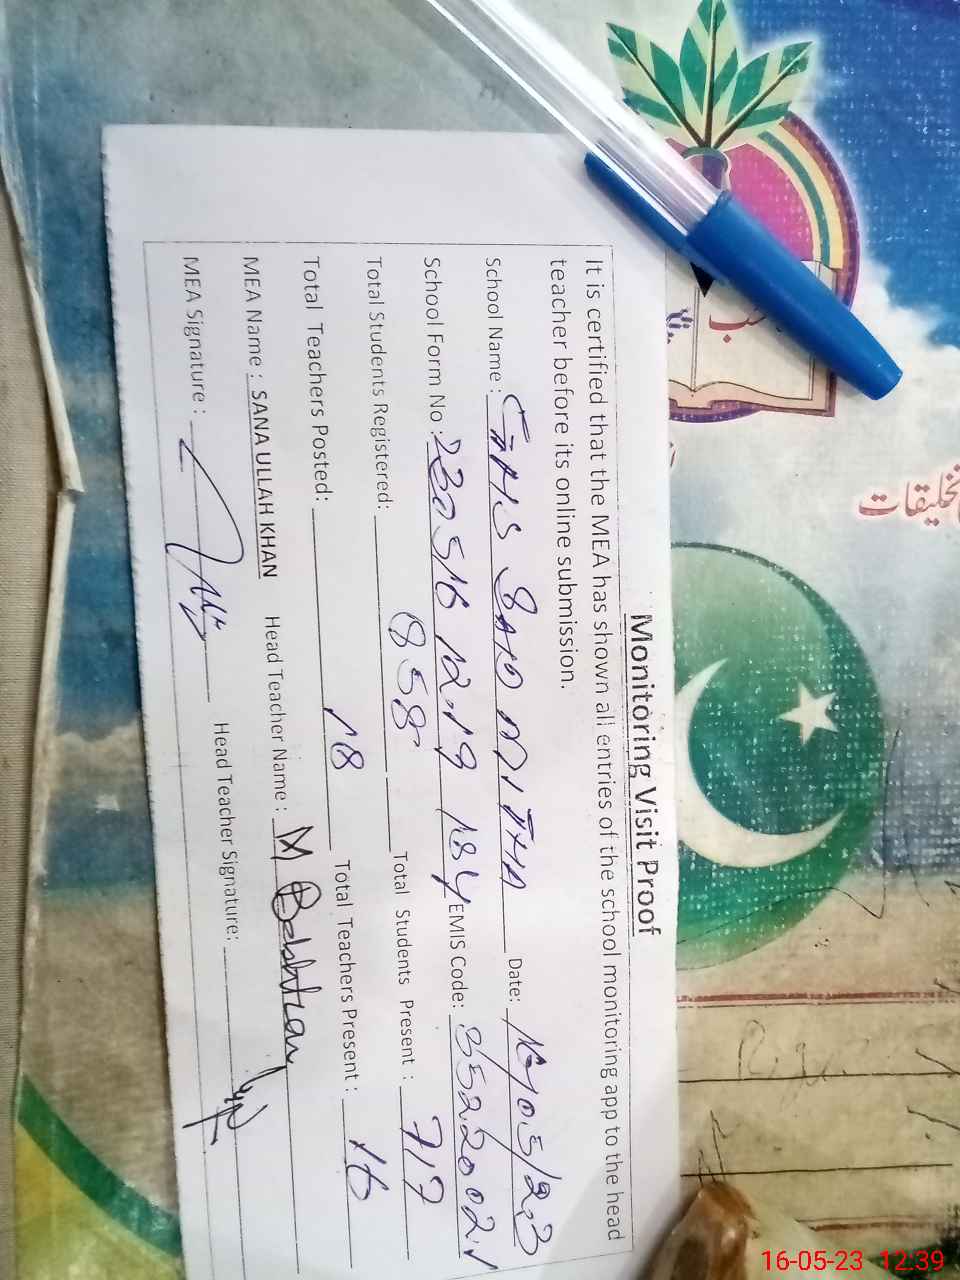 Monitoring Visit Proof
It is certified that the MEA has shown all entries of the school monitoring app to the head
teacher before its online submission.
School Name : GHS SAID MITHA Date: 16/05/23
School Form No : 230516 1219 184 EMIS Code: 35220021
Total Students Registered: 858 Total Students Present : 717
Total Teachers Posted: 18 Total Teachers Present : 16
MEA Name : SANA ULLAH KHAN Head Teacher Name : M
MEA Signature : Head Teacher Signature:
تخلیقات
16-05-23 12:39